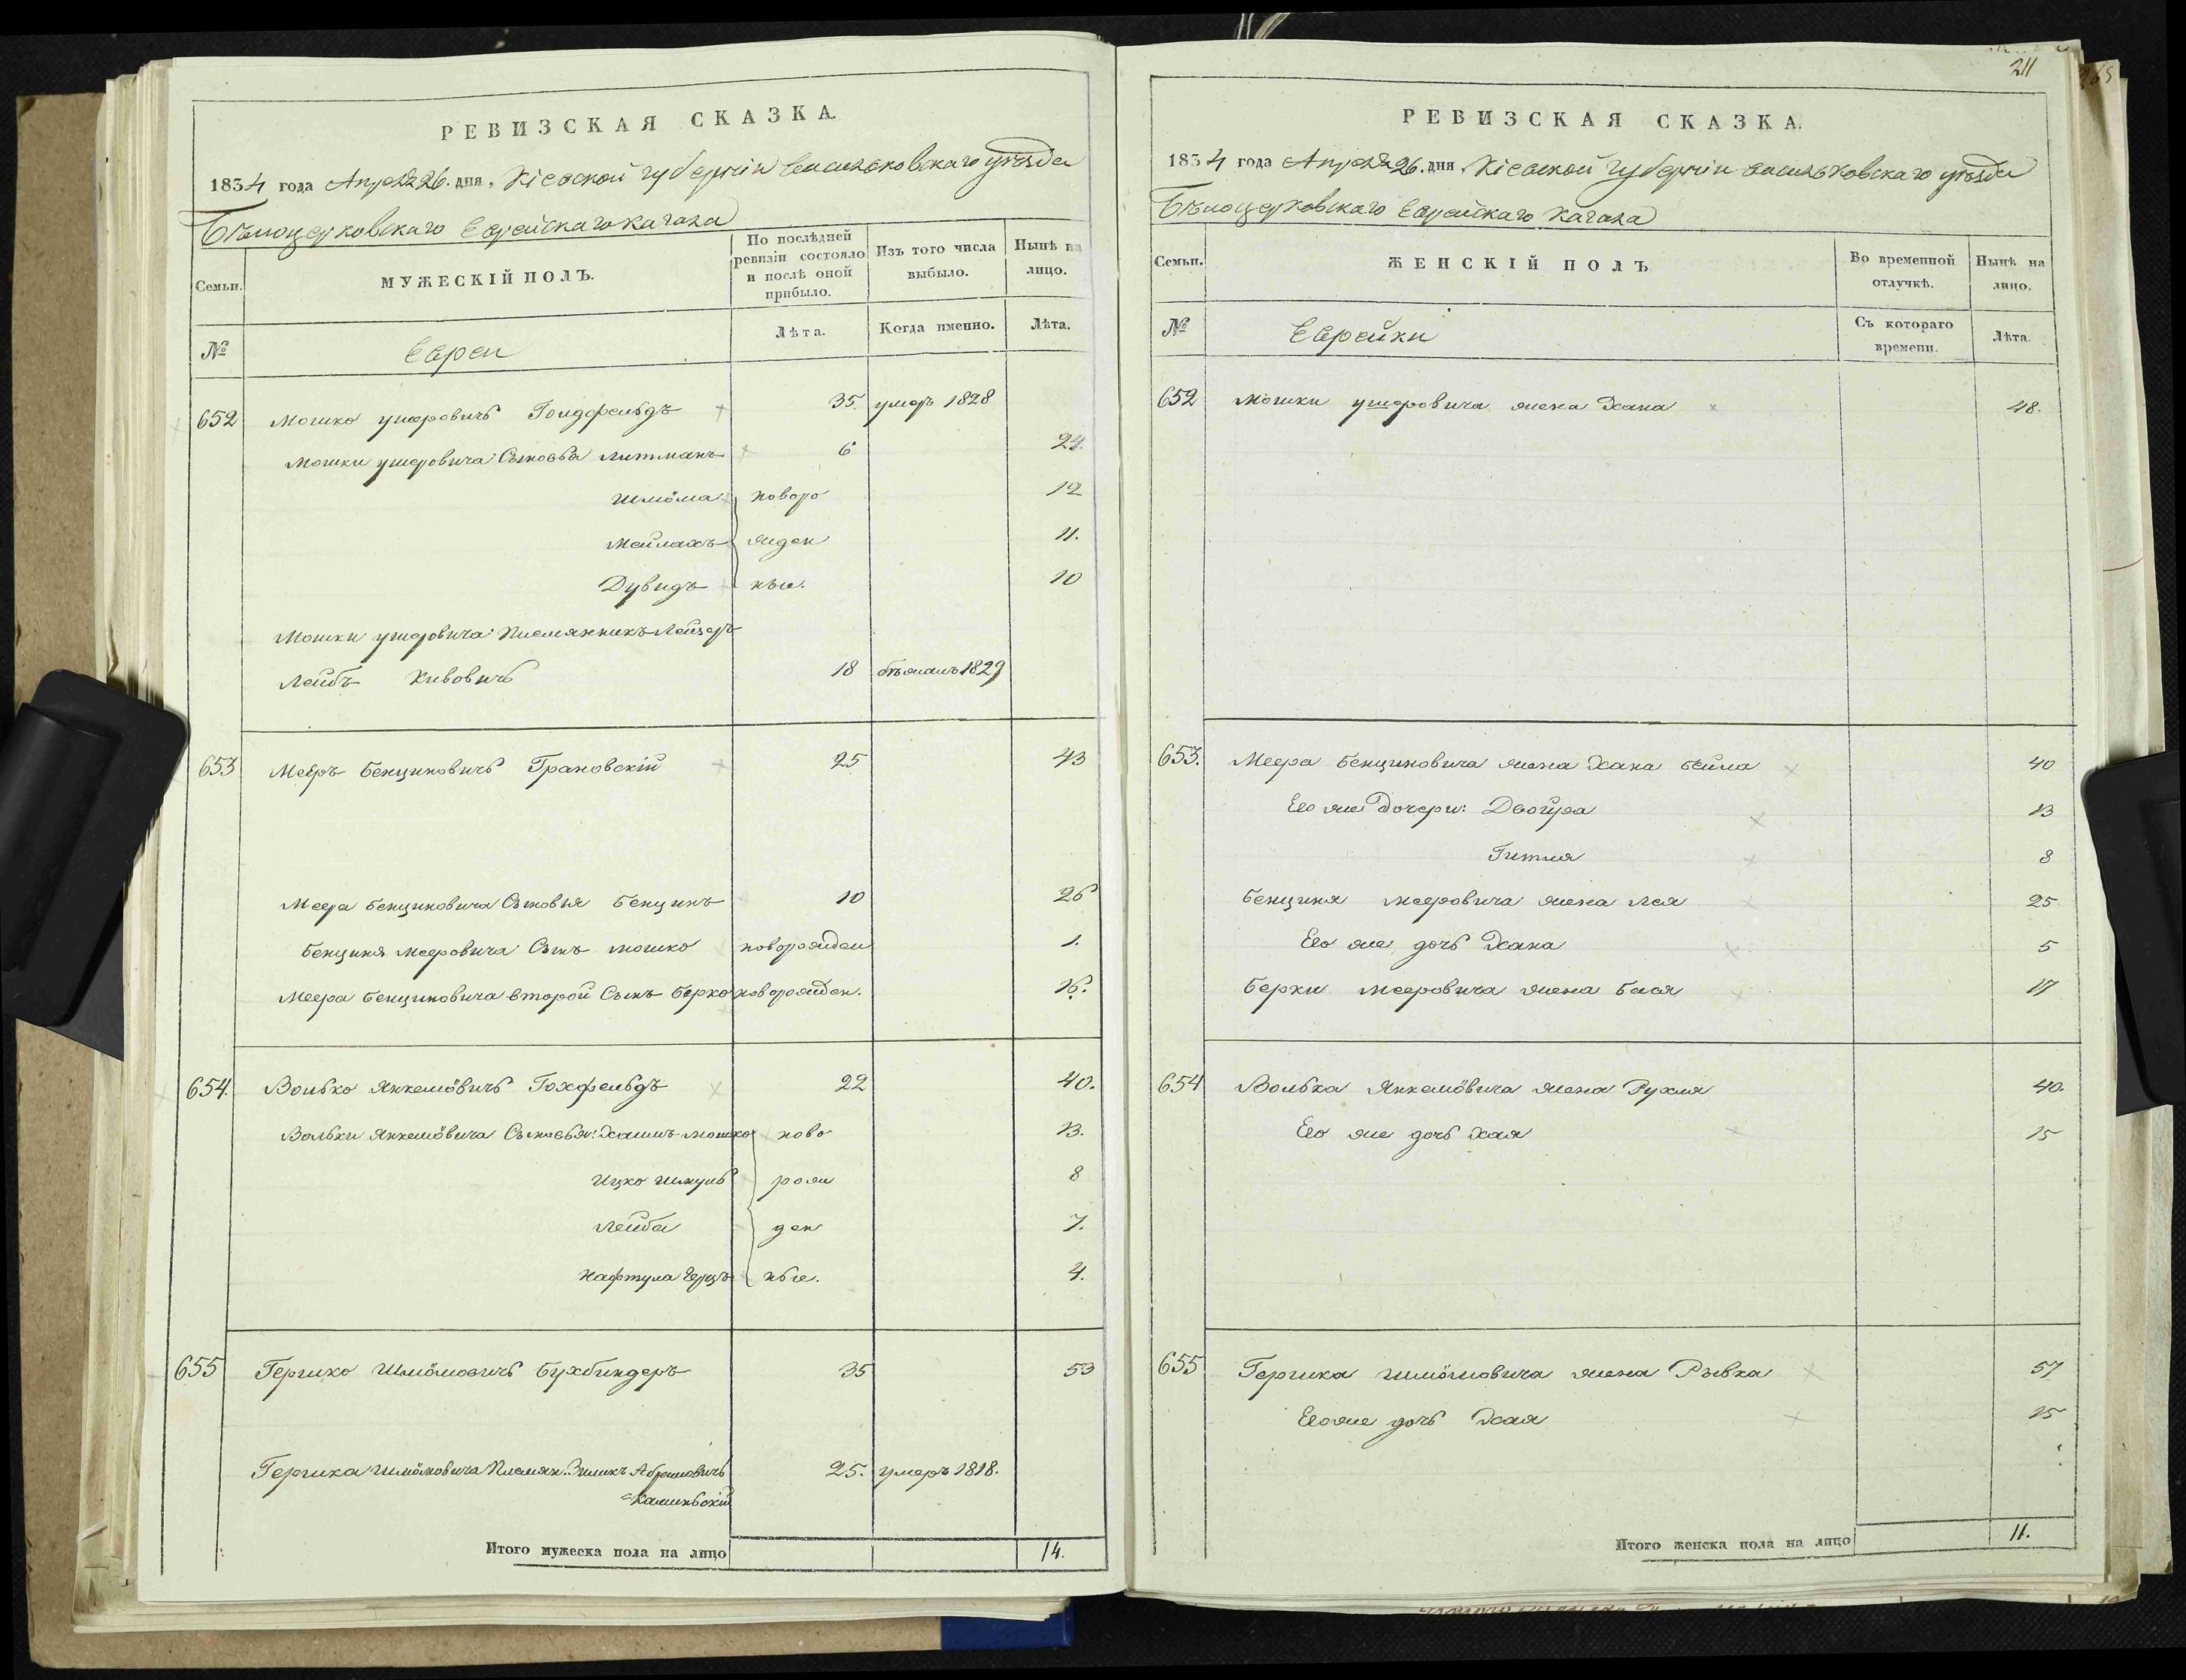 РЕВИЗСКАЯ СКАЗКА.
1834 года Апреля 26. дня, Кіевской губерніи Васильковскаго уѣзда
Бѣлоцерковскаго Еврейскаго Кагала
Семьи.
МУЖЕСКІЙ ПОЛЪ.
По послѣдней ревизіи состояло и послѣ оной прибыло.
Изъ того числа выбыло.
Нынѣ на лицо.
№
Евреи
Лѣта.
Когда именно.
Лѣта.
652 Мошко Ушеровичъ Голдфельдъ 35. умеръ 1828
Мошки Ушеровича Сыновья Литманъ 6 24.
Шлiома новоро 12
Мейлахъ жден 11.
Дувидъ ные. 10
Мошки Ушеровича Племянникъ Лейзеръ
Лейбъ Кивовичъ 18 бѣжалъ 1829
653 Мееръ Бенциновичъ Грановскій 25 43
Меера Бенциновича Сыновья Бенцинъ 10 26
Бенциня Мееровича Сынъ Мошко новорожден 1.
Меера Бенциновича второй Сынъ Берко новорожден. 16.
654. Волько Янкелiовичъ Гохфельдъ 22 40.
Вольки Янкелiовича Сыновья: Хаимъ Мошко ново 13.
Ицко Шмуль рож 8
Лейба ден 7.
Нафтула Герцъ ные. 4.
655 Гершко Шлiомовичъ Бухбиндеръ 35 53
Гершка Шлiомовича Племян. Зиликъ Абрамовичъ 25. умеръ 1818.
Калиньскій
Итого мужеска пола на лицо 14.
211
РЕВИЗСКАЯ СКАЗКА.
1834 года Апреля 26. дня, Кіевской Губерніи Васильковскаго уѣзда
Бѣлоцерковскаго Еврейскаго Кагала
Семьи.
ЖЕНСКІЙ ПОЛЪ
Во временной отлучкѣ.
Нынѣ на лицо.
№
Еврейки
Съ котораго времени.
Лѣта.
652 Мошки Ушеровича жена Хана 48.
653. Меера Бенциновича жена Хана Бейла 40
Его же Дочери: Двойра 13
Гитля 8
Бенциня Мееровича жена Лея 25
Его же дочь Хана 5
Берки Мееровича жена Бася 17
654 Волька Янкелiовича жена Рухля 40.
Его же дочь Хая 15
655 Гершка Шлiомовича жена Рывка 57
Его же дочь Хая 15
Итого женска пола на лицо 11.